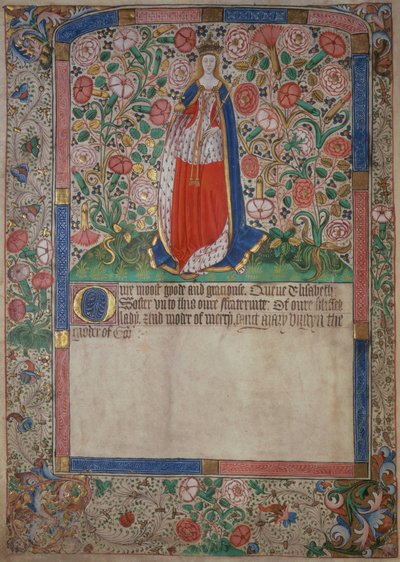 Oure moost goode and graciouse. Quene Elisabeth
Soster vnto this oure fraternite. Of oure blissed
lady. And moder of mercy. sanct mary virgyn the
moder of God